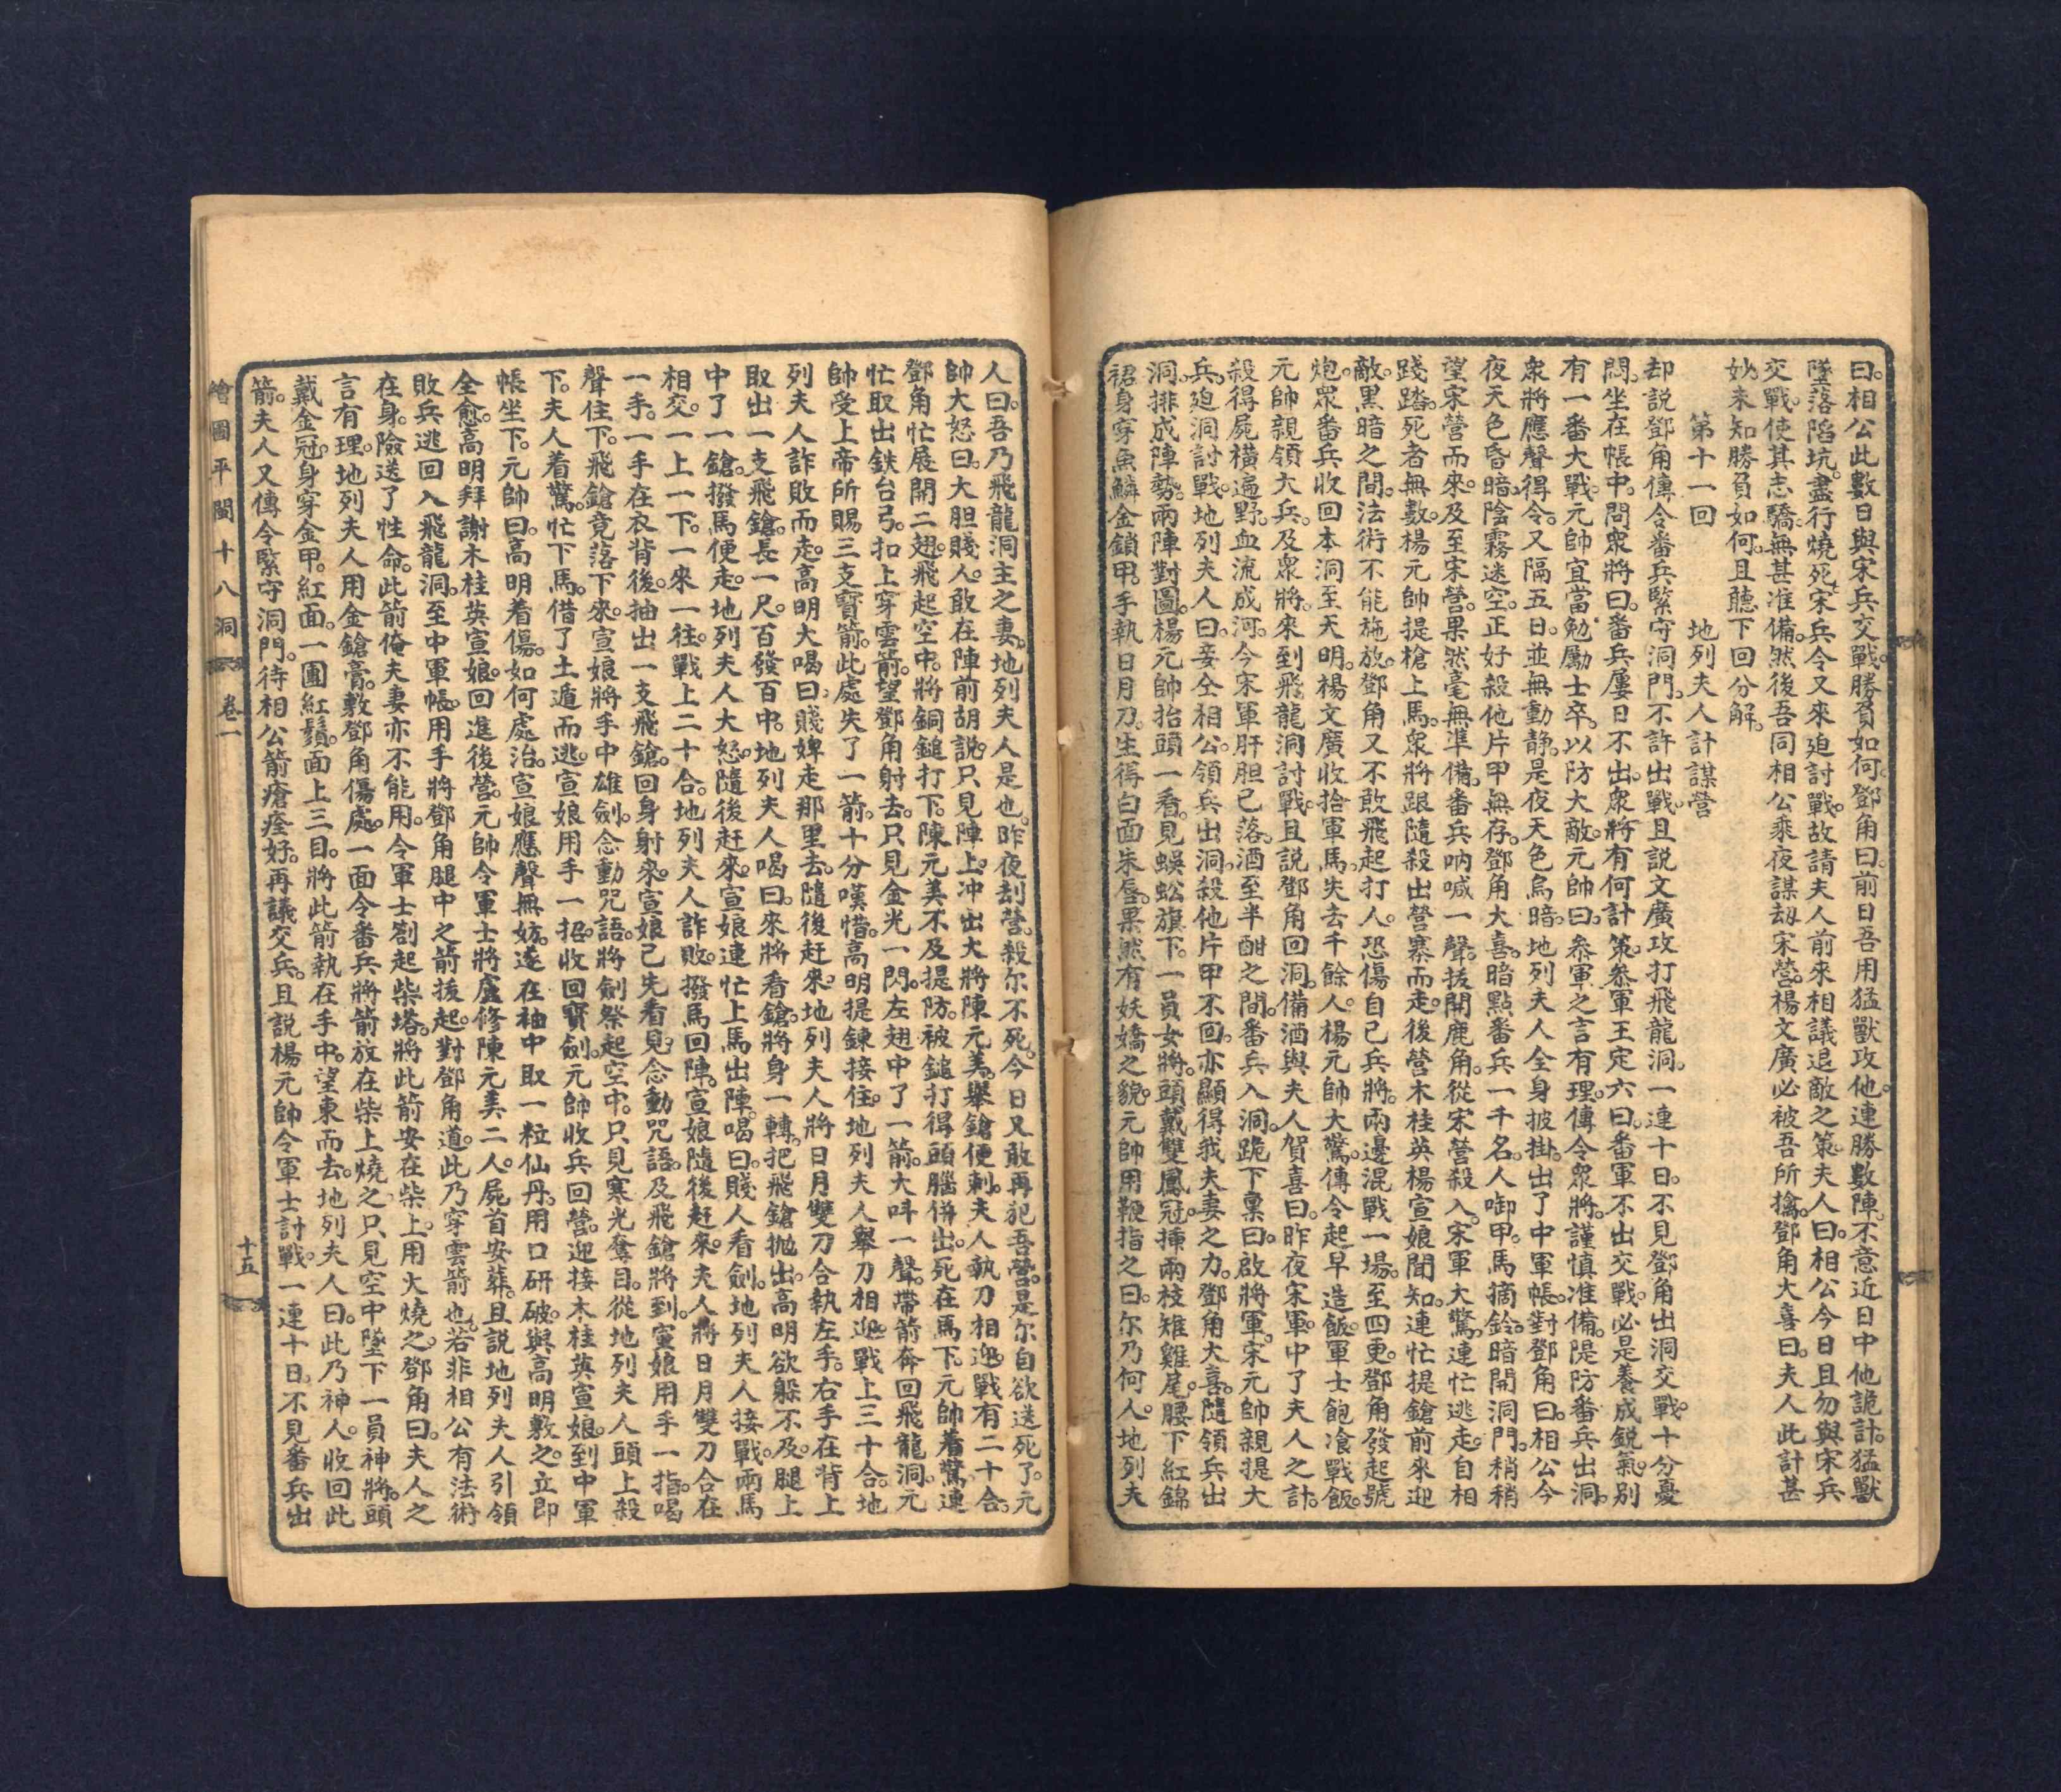 曰。相公此數日與宋兵交戰。勝負如何。鄧角曰。前日吾用猛獸攻他。連勝數陣。不意近日中他詭計。猛獸
墜落陷坑。盡行燒死。宋兵今又來迫討戰。故請夫人前來相議退敵之策。夫人曰。相公今日且勿與宋兵
交戰。使其志驕。無甚准備。然後吾同相公乘夜謀刧宋營。楊文廣必被吾所擒。鄧角大喜曰。夫人此計甚
妙。未知勝負如何。且聽下回分解。
第十一回 地列夫人計謀營
却說鄧角傳令番兵緊守洞門。不許出戰。且說文廣攻打飛龍洞。一連十日。不見鄧角出洞交戰。十分憂
悶。坐在帳中。問衆將曰。番兵屢日不出。衆將有何計策。叅軍王定六曰。番軍不出交戰。必是養成銳氣。別
有一番大戰。元帥宜當勉勵士卒。以防大敵。元帥曰。叅軍之言有理。傳令衆將。謹慎准備。隄防番兵出洞。
衆將應聲得令。又隔五日。並無動静。是夜天色烏暗。地列夫人全身披掛。出了中軍帳。對鄧角曰。相公今
夜天色昏暗。陰霧迷空。正好殺他片甲無存。鄧角大喜。暗點番兵一千名。人啣甲。馬摘鈴。暗開洞門。稍稍
望宋營而來。及至宋營。果然毫無準備。番兵吶喊一聲。拔開鹿角。從宋營殺入。宋軍大驚。連忙逃走。自相
踐踏。死者無數。楊元帥提槍上馬。衆將跟隨殺出營寨而走。後營木桂英楊宣娘聞知。連忙提鎗前來迎
敵。黑暗之間。法術不能施放。鄧角又不敢飛起打人。恐傷自己兵將。兩邊混戰一場。至四更。鄧角發起號
炮。眾番兵收回本洞。至天明。楊文廣收拾軍馬。失去千餘人。楊元帥大驚。傳令起早造飯。軍士飽飡戰飯。
元帥親領大兵。及衆將。來到飛龍洞討戰。且說鄧角回洞。備酒與夫人賀喜曰。昨夜宋軍。中了夫人之計。
殺得屍橫遍野。血流成河。今宋軍肝胆已落。酒至半酣之間。番兵入洞。跪下稟曰。啟將軍。宋元帥親提大
兵。廹洞討戰。地列夫人曰。妾仝相公。領兵出洞。殺他片甲不回。亦顯得我夫妻之力。鄧角大喜。隨領兵出
洞。排成陣勢。兩陣對圖。楊元帥抬頭一看。見蜈蚣旗下。一員女將。頭戴雙鳳冠。插兩枝雉雞尾。腰下紅錦
裙。身穿魚鱗金鎖甲。手執日月刀。生得白面朱唇。果然有妖嬌之貌。元帥用鞭指之曰。尔乃何人。地列夫
人曰。吾乃飛龍洞主之妻。地列夫人是也。昨夜刦營。殺尔不死。今日又敢再犯吾營。是尔自欲送死了。元
帥大怒曰。大胆賤人。敢在陣前胡說。只見陣上。冲出大將陳元美。舉鎗便刺。夫人執刀相迎。戰有二十合。
鄧角忙展開二翅。飛起空中。將銅鎚打下。陳元美不及提防。被鎚打得頭腦併出。死在馬下。元帥着驚。連
忙取出鉄台弓。扣上穿雲箭。望鄧角射去。只見金光一閃。左翅中了一箭。大呌一聲。帶箭奔回飛龍洞。元
帥受上帝所賜三支寶箭。此處失了一箭。十分嘆惜。高明提鍊接住。地列夫人舉刀相迎。戰上三十合。地
列夫人詐敗而走。高明大喝曰。賤婢走那里去。隨後赶來。地列夫人將日月雙刀合執左手。右手在背上
取出一支飛鎗。長一尺。百發百中。地列夫人喝曰。來將看鎗。將身一轉。把飛鎗抛出。高明欲躲不及。腿上
中了一鎗。撥馬便走。地列夫人大怒。隨後赶來。宣娘連忙上馬出陣。喝曰。賤人看劍。地列夫人接戰。兩馬
相交。一上一下。一來一往。戰上二十合。地列夫人詐敗。撥馬回陣。宣娘隨後赶來。夫人將日月雙刀合在
一手。一手在衣背後。抽出一支飛鎗。回身射來。宣娘己先看見。念動咒語。及飛鎗將到。宣娘用手一指。喝
聲住下。飛鎗竟落下來。宣娘將手中雄劍。念動咒語。將劍祭起空中。只見寒光奪目。從地列夫人頭上殺
下。夫人着驚。忙下馬。借了土遁而逃。宣娘用手一招。收回寶劍。元帥收兵回營。迎接木桂英宣娘。到中軍
帳坐下。元帥曰。高明着傷。如何處治。宣娘應聲無妨。遂在袖中取一粒仙丹。用口研破。與高明敷之。立即
全愈。高明拜謝木桂英宣娘。回進後營。元帥令軍士將盧修陳元美二人。屍首安葬。且說地列夫人引領
敗兵逃回入飛龍洞。至中軍帳。用手將鄧角腿中之箭拔起。對鄧角道。此乃穿雲箭也。若非相公有法術
在身。險送了性命。此箭俺夫妻亦不能用。令軍士劄起柴塔。將此箭安在柴上。用火燒之。鄧角曰。夫人之
言有理。地列夫人用金鎗膏。敷鄧角傷處。一面令番兵將箭放在柴上燒之。只見空中墜下一員神將。頭
戴金冠。身穿金甲。紅面。一圍紅鬚。面上三目。將此箭執在手中。望東而去。地列夫人曰。此乃神人。收回此
箭。夫人又傳令緊守洞門。待相公箭瘡痊好。再議交兵。且說楊元帥令軍士討戰。一連十日。不見番兵出
繪圖平閩十八洞 卷一 十五